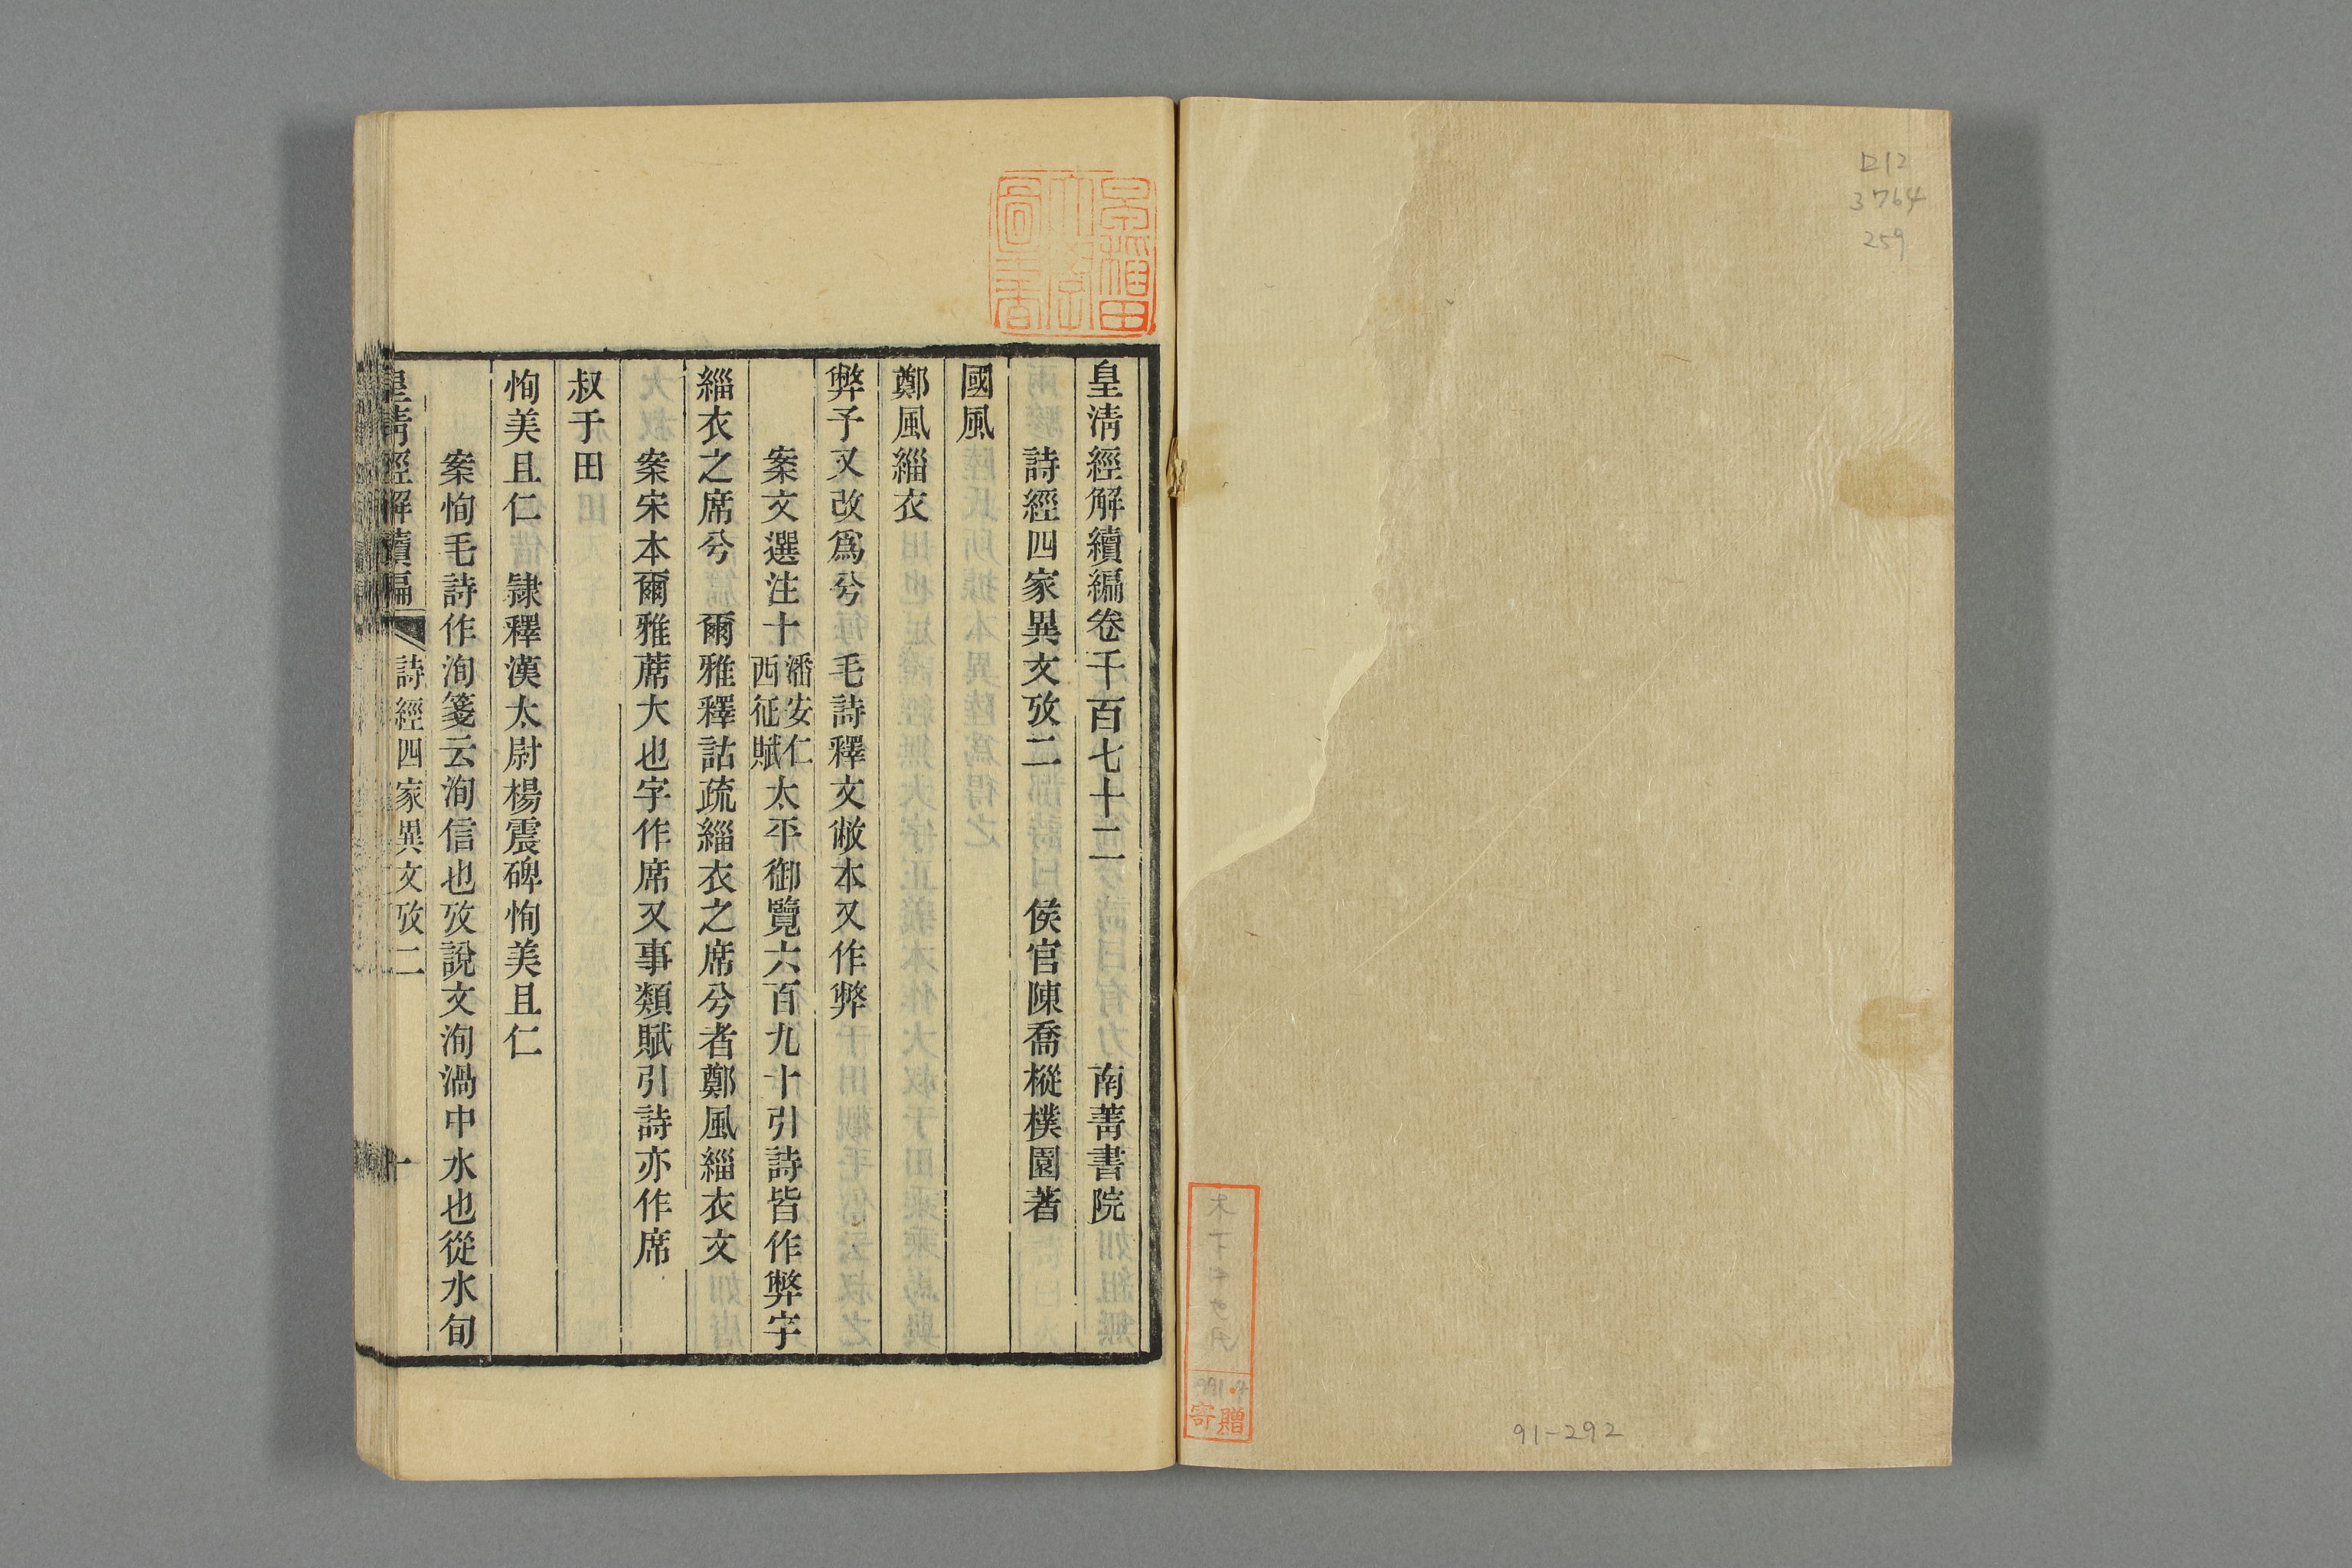 ロ12
3764
259
91-292
寄贈
早稲田大學圖書
皇清經解續編卷千百七十二 南菁書院
詩經四家異文攷二 侯官陳喬樅樸園著
國風
鄭風緇衣
弊予又改爲兮 毛詩釋文敝本又作弊
案文選注十潘安仁西征賦太平御覽六百九十引詩皆作弊字
緇衣之席兮 爾雅釋詁疏緇衣之席兮者鄭風緇衣文
案宋本爾雅蓆大也字作席又事類賦引詩亦作席
叔于田
恂美且仁 隷釋漢太尉楊震碑恂美且仁
案恂毛詩作洵箋云洵信也攷說文洵渦中水也從水旬
皇清經解續編 詩經四家異文攷二 一